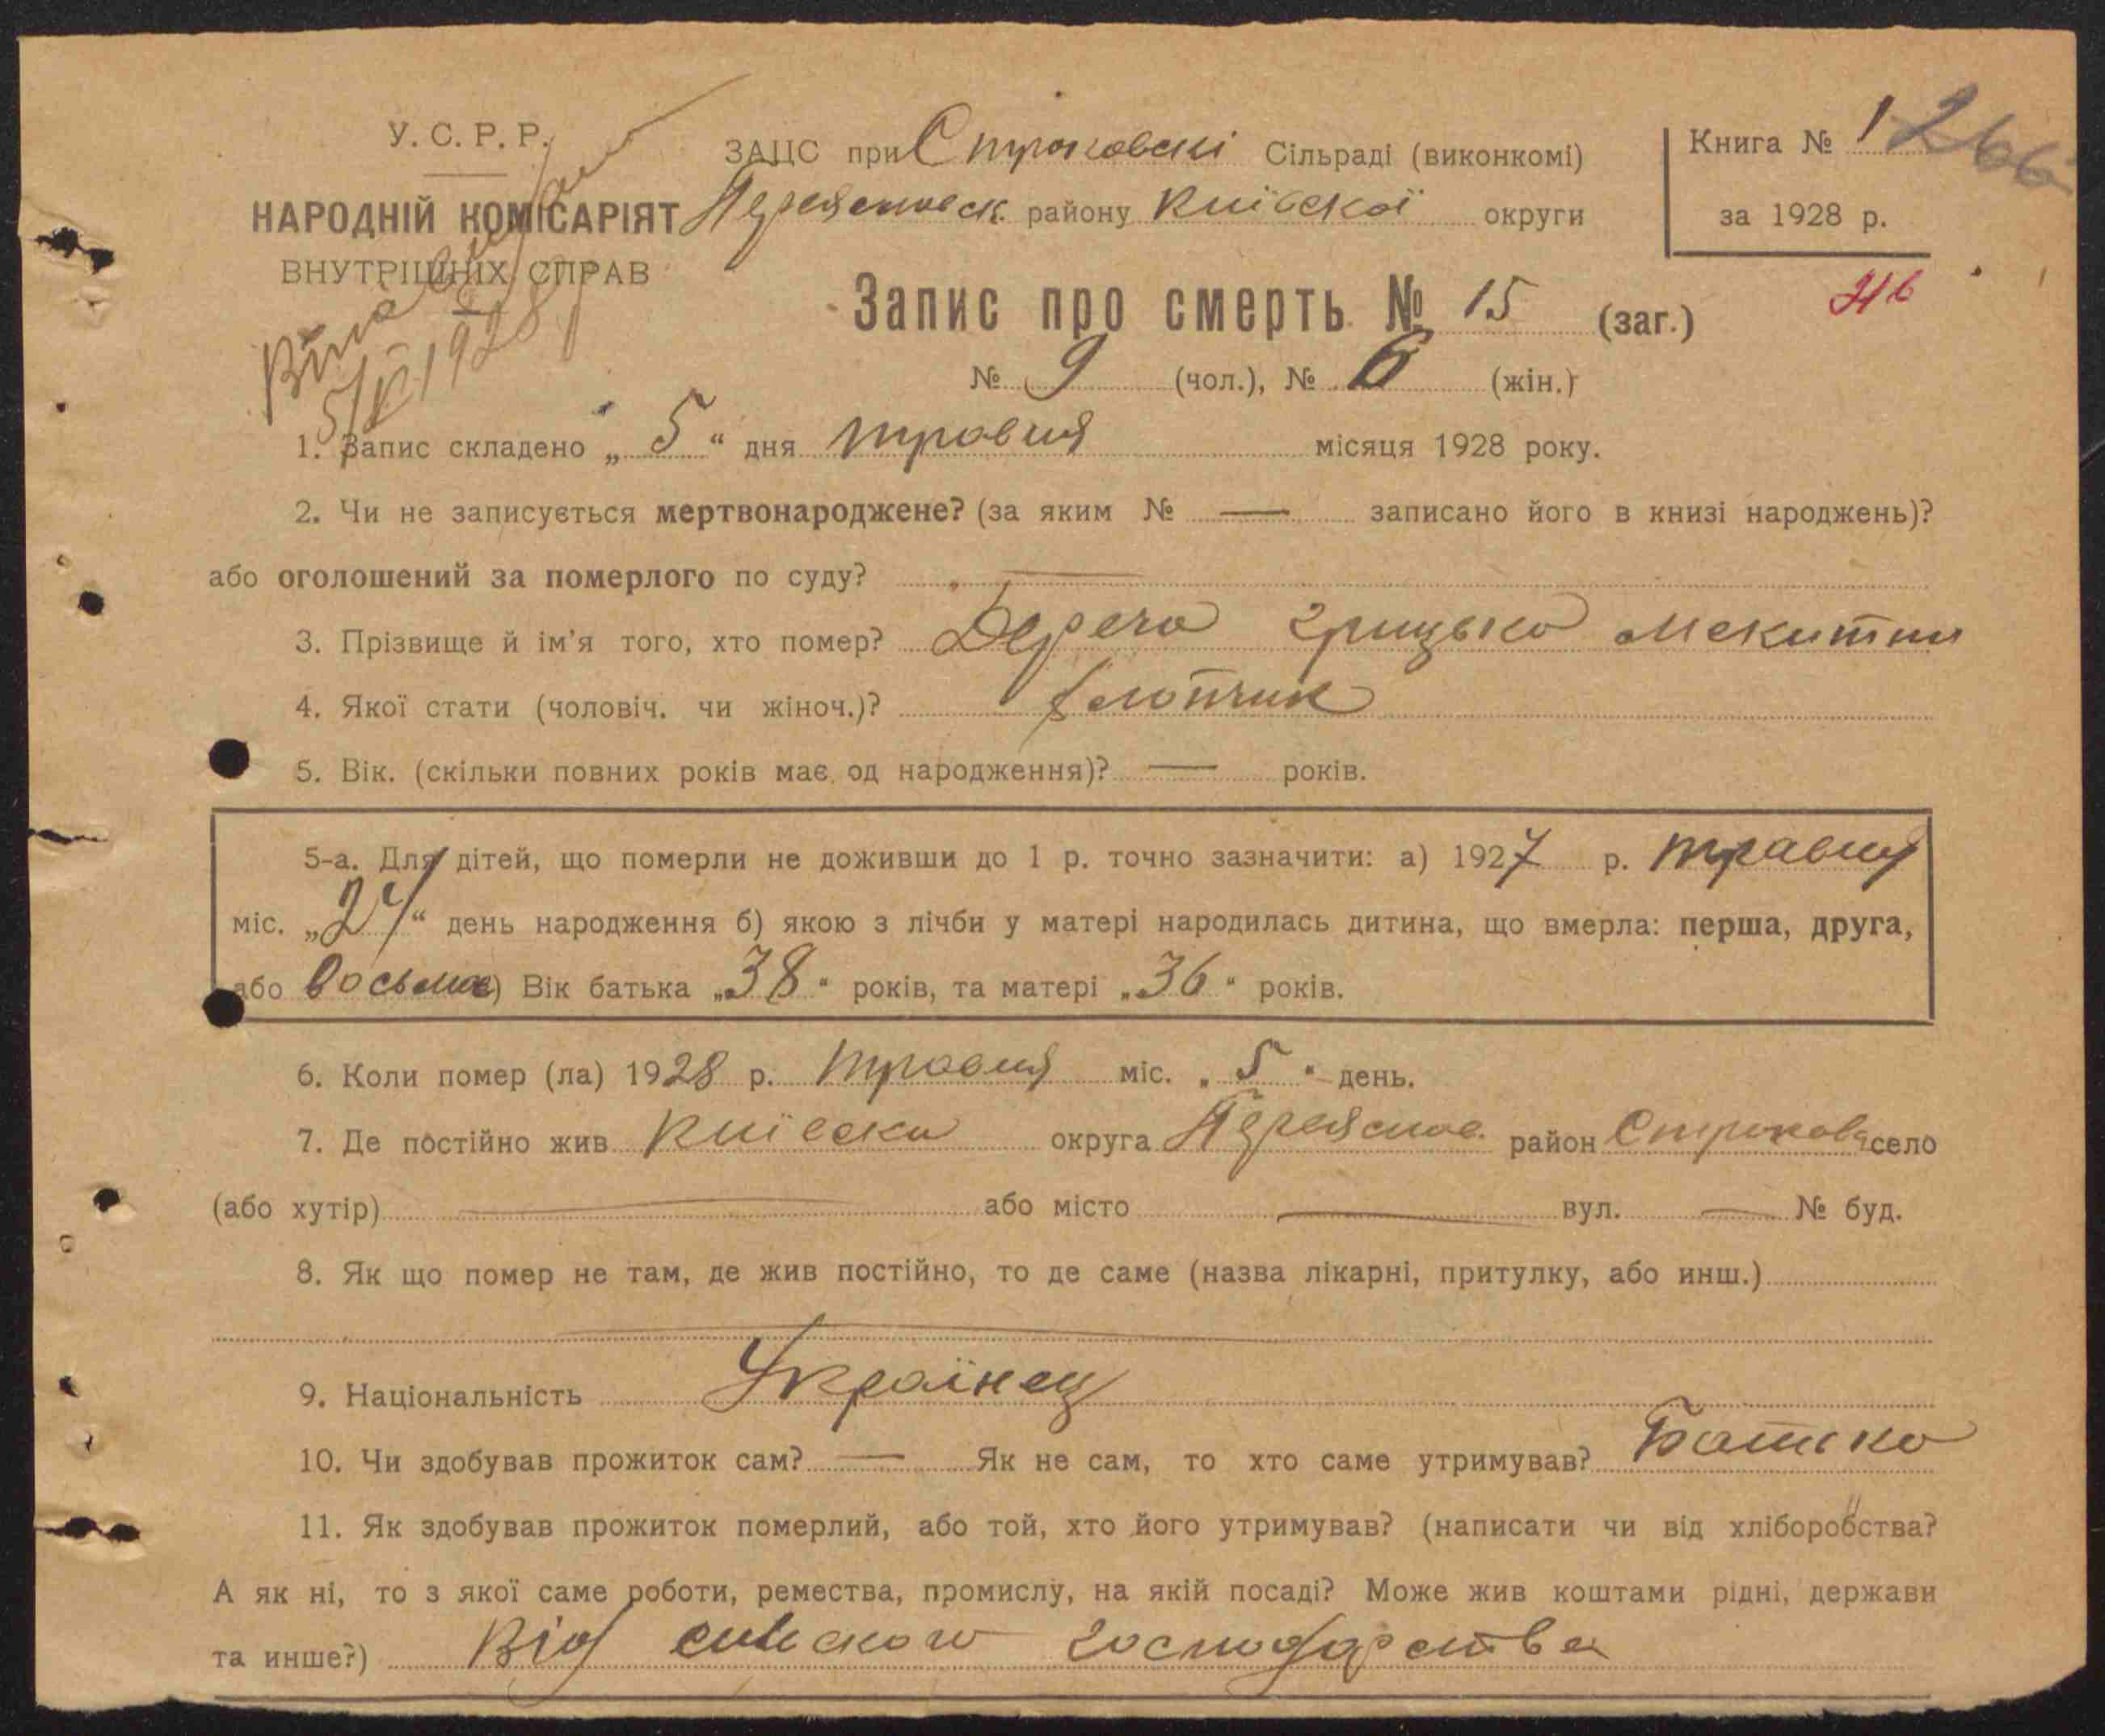 У. С. Р. Р.
НАРОДНІЙ КОМІСАРІЯТ
ВНУТРІШНІХ СПРАВ
5/V 1928
ЗАЦС при Строковскі Сільраді (виконкомі)
Переяславск. району Київскої округи
Книга № 1 266
за 1928 р.
Запис про смерть № 15 (заг.)
№ 9 (чол.), № 6 (жін.)
1. Запис складено „ 5 “ дня травня місяця 1928 року.
2. Чи не записується мертвонароджене? (за яким № — записано його в книзі народжень)?
або оголошений за померлого по суду? —
3. Прізвище й ім’я того, хто помер? Грицько
4. Якої стати (чоловіч. чи жіноч.)? хлопчик
5. Вік. (скільки повних років має од народження)? — років.
5-а. Для дітей, що померли не доживши до 1 р. точно зазначити: а) 1927 р. травня
міс. „24“ день народження б) якою з лічби у матері народилась дитина, що вмерла: перша, друга,
або восьма) Вік батька „38“ років, та матері „36“ років.
6. Коли помер (ла) 1928 р. травня міс. „ 5 “ день.
7. Де постійно жив Київска округа Переяслав. район Строкова село
(або хутір) — або місто — вул. — № буд.
8. Як що помер не там, де жив постійно, то де саме (назва лікарні, притулку, або инш.)
—
9. Національність Українец
10. Чи здобував прожиток сам? — Як не сам, то хто саме утримував? Батько
11. Як здобував прожиток померлий, або той, хто його утримував? (написати чи від хліборобства?
А як ні, то з якої саме роботи, ремества, промислу, на якій посаді? Може жив коштами рідні, держави
та инше?) Від сельского господарства